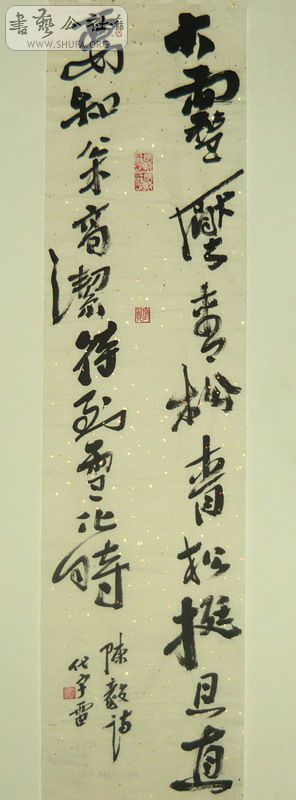 書藝公社
WWW.SHUFA.ORG
大雪壓青松青松挺且直
要知枀高潔待到雪化時
陳毅詩